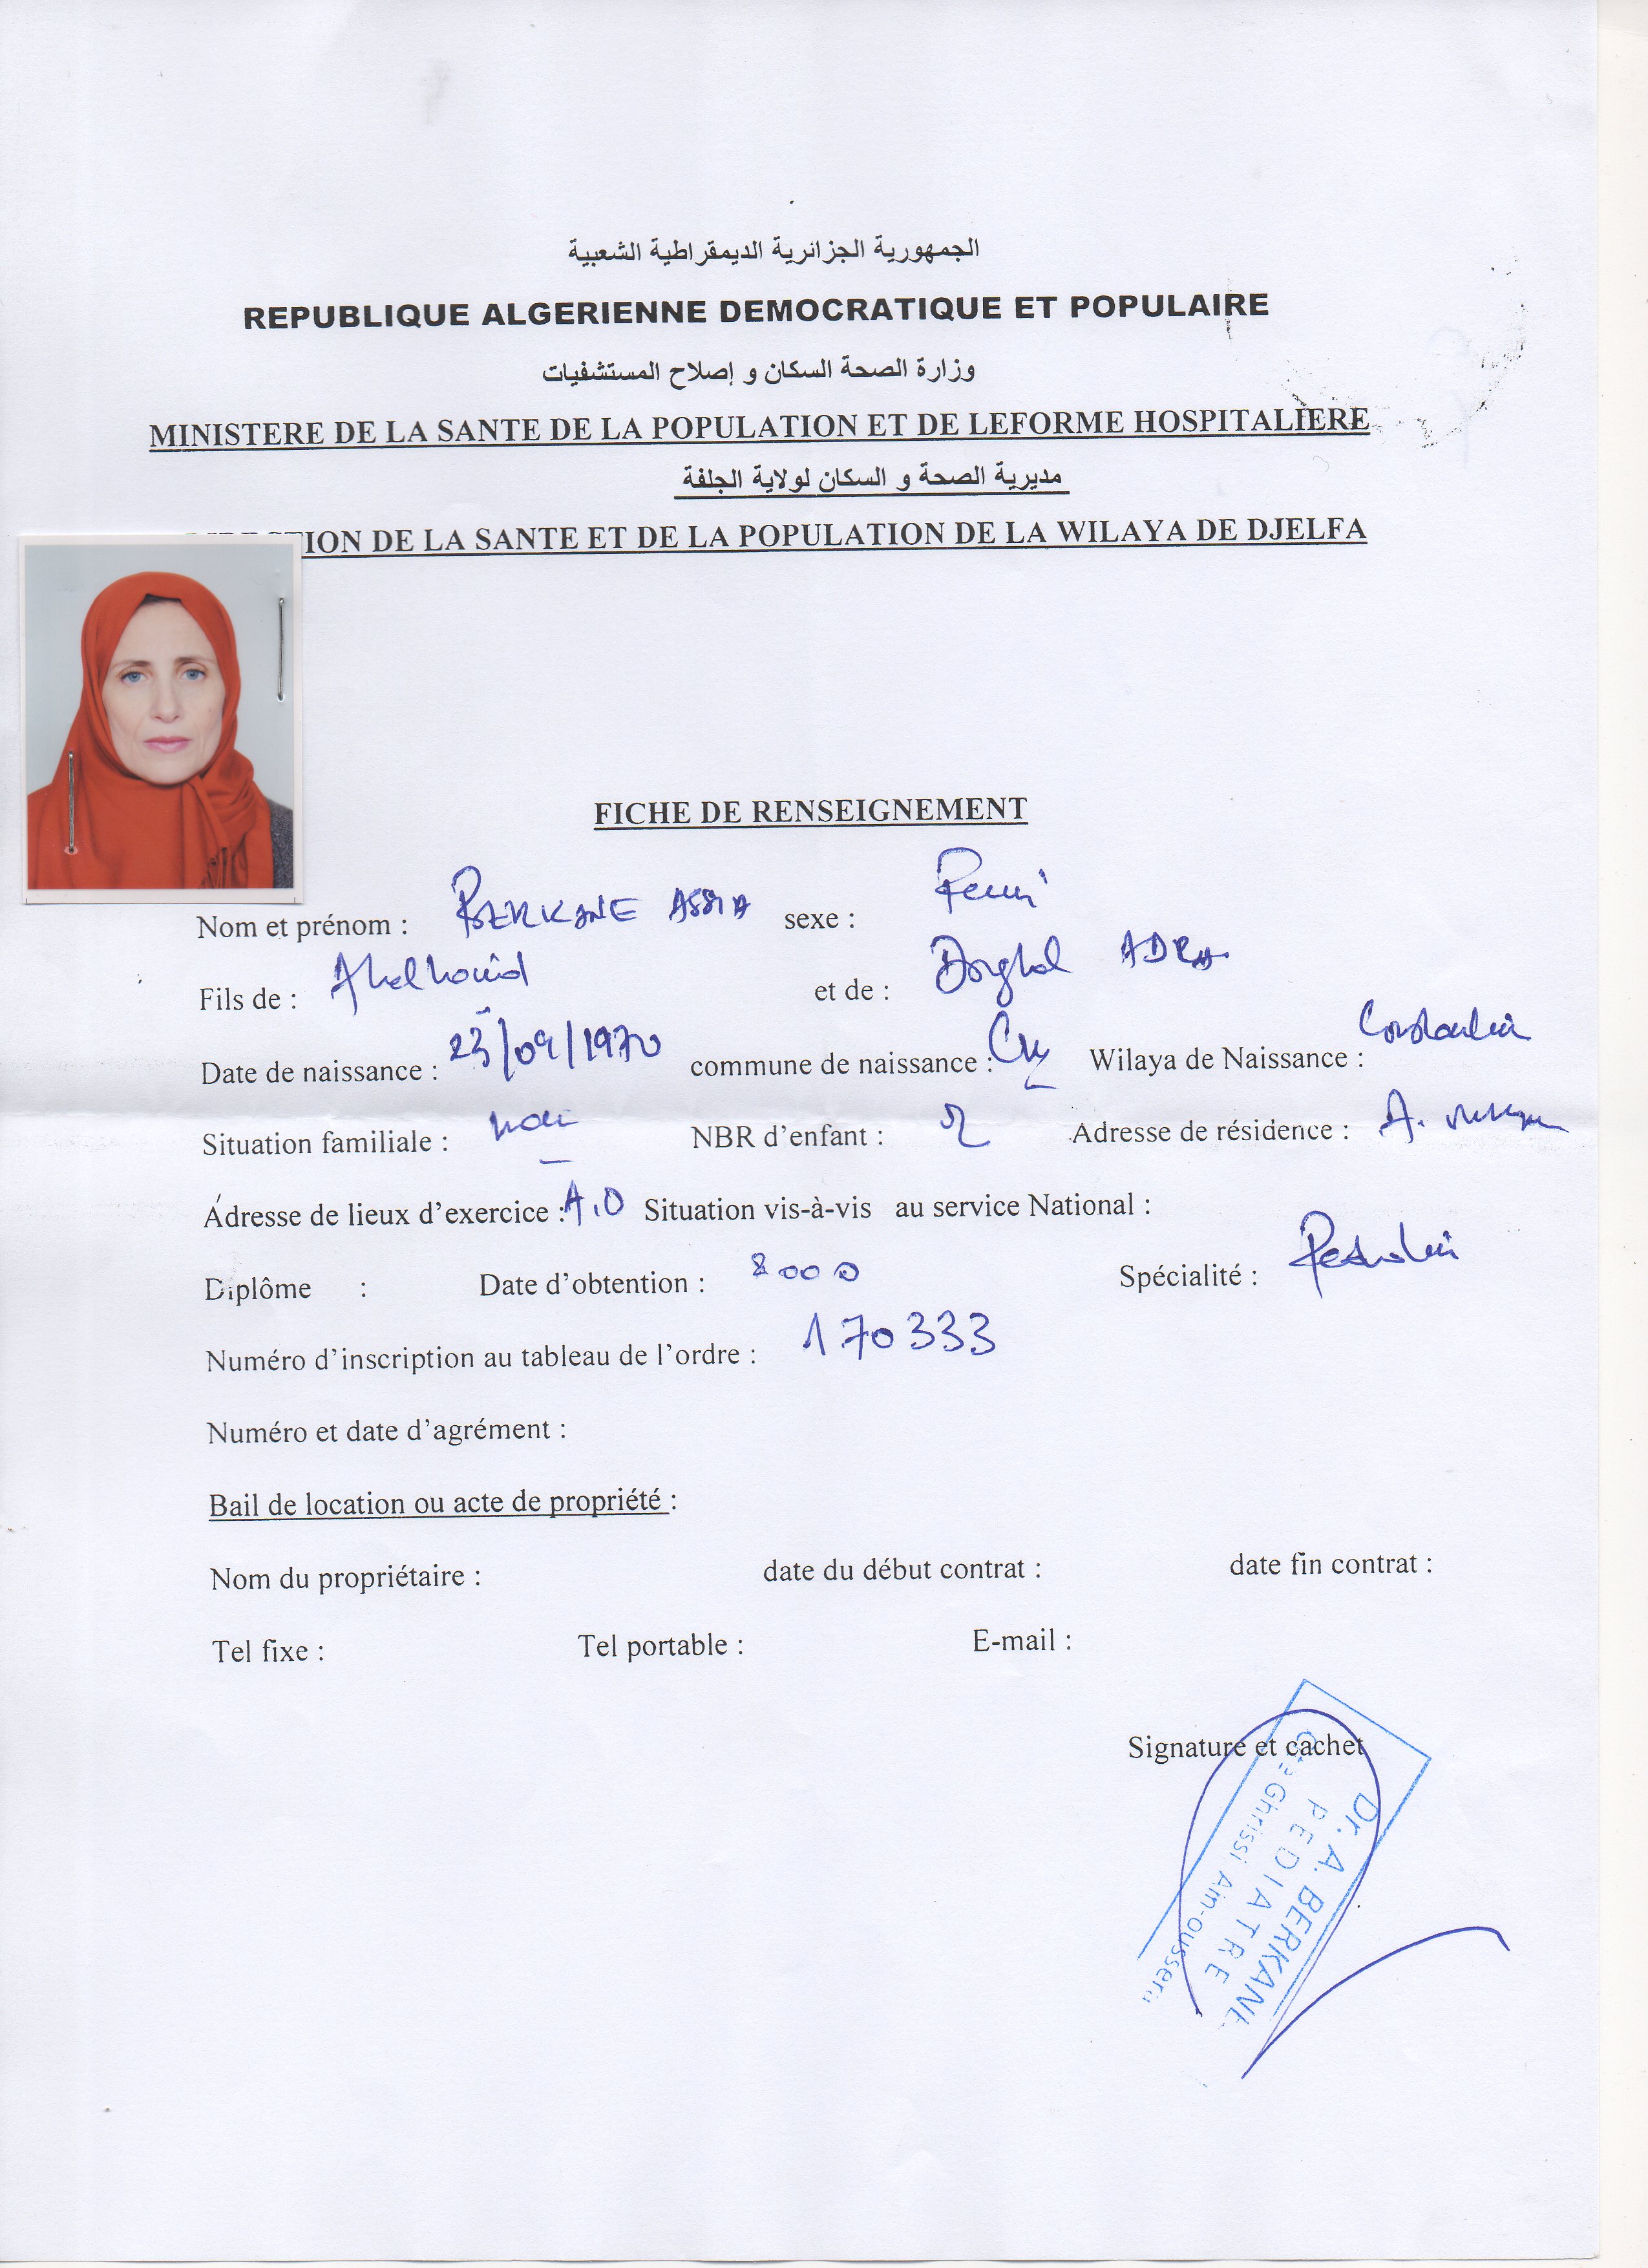 الجمهورية الجزائرية الديمقراطية الشعبية
REPUBLIQUE ALGERIENNE DEMOCRATIQUE ET POPULAIRE
وزارة الصحة السكان و إصلاح المستشفيات
MINISTERE DE LA SANTE DE LA POPULATION ET DE LEFORME HOSPITALIERE
مديرية الصحة و السكان لولاية الجلفة
DIRECTION DE LA SANTE ET DE LA POPULATION DE LA WILAYA DE DJELFA
FICHE DE RENSEIGNEMENT
Nom et prénom : BERKANE ASSIA sexe :
Fils de : et de :
Date de naissance : 23/09/1970 commune de naissance : Wilaya de Naissance :
Situation familiale : NBR d'enfant : Adresse de résidence :
Adresse de lieux d'exercice : A.O Situation vis-à-vis au service National :
Diplôme : Date d'obtention : Spécialité :
Numéro d'inscription au tableau de l'ordre : 170333
Numéro et date d'agrément :
Bail de location ou acte de propriété :
Nom du propriétaire : date du début contrat : date fin contrat :
Tel fixe : Tel portable : E-mail :
Signature et cachet
Dr. A. BERKANE
PEDIATRE
Ghrissi Ain-oussera